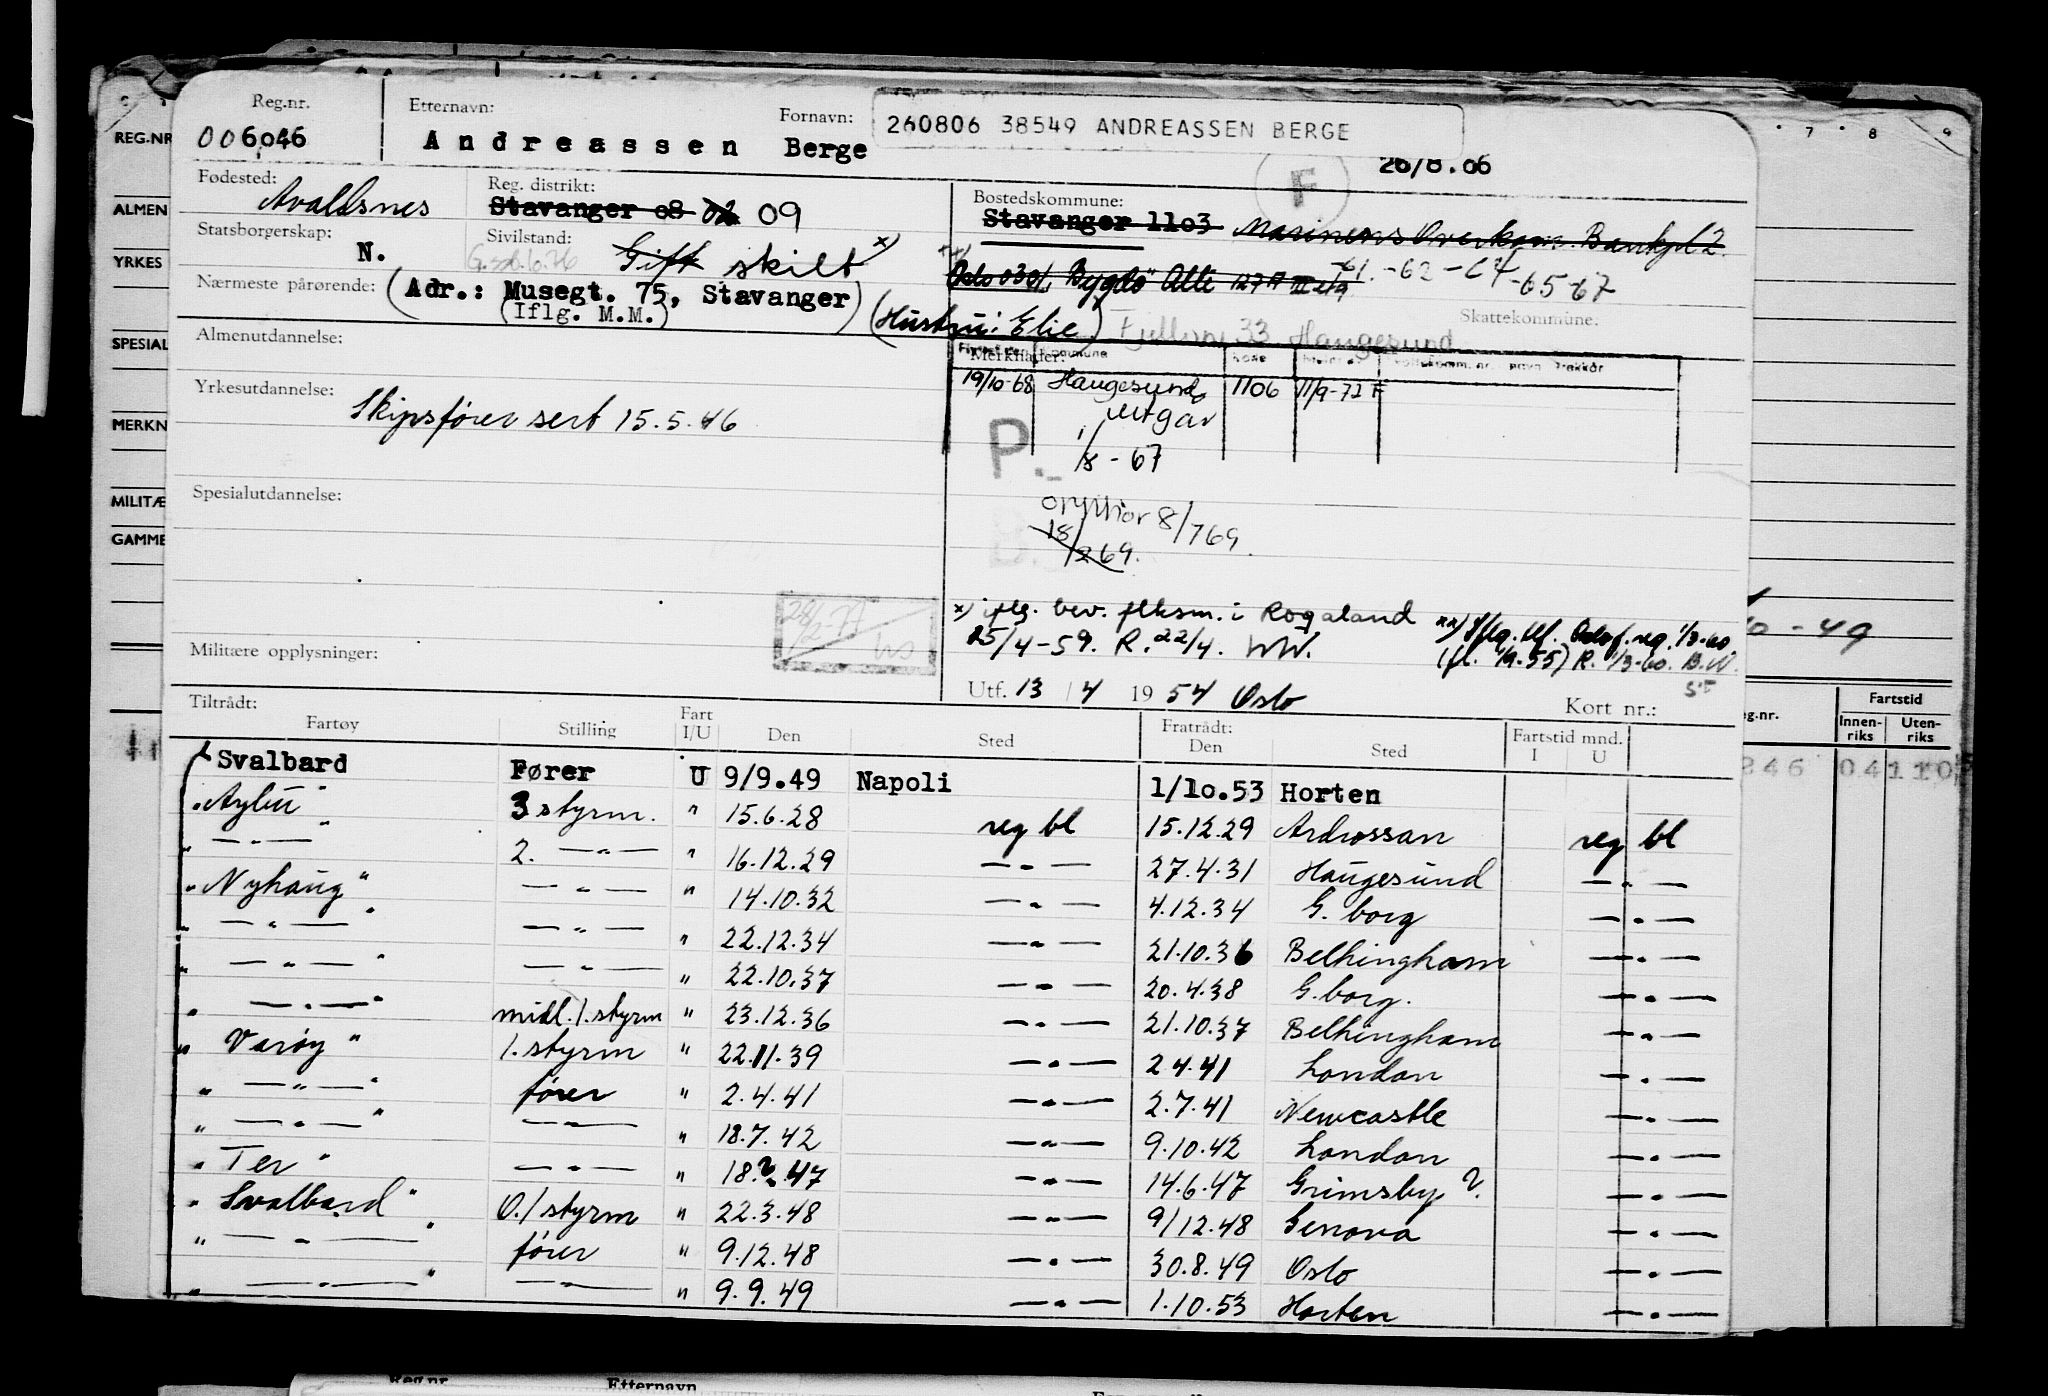 Reg.nr. Etternavn: Fornavn: 260806 38549 ANDREASSEN BERGE
REG.NR 006046 Andreassen Berge 26/8.06 7 8 9
Fødested: Avaldsnes Reg. distrikt: Stavanger 08 02 09 F Bostedskommune: Stavanger 1103 Marinens Overkom. Bankpl 2.
ALMEN
Statsborgerskap: N. Sivilstand: Gift skilt x)
YRKES
Oslo 0301, Bygdö Alle 127 -61.-62-64-65-67
Nærmeste pårørende: (Adr.: Musegt. 75, Stavanger) (Hustru: Elie)
(Iflg. M.M.) 33 Haugesund Skattekommune:
SPESIAL Almenutdannelse: Merknader:
19/10-68 Haugesund 1106 11/9-72 F
Yrkesutdannelse: Skipsfører sert 15.5.46
utgår
MERKN P. 1/8 - 67
MILITÆ Spesialutdannelse: 8/769.
18/269.
GAMME
28/2-77
x) iflg. bev. flksm. i Rogaland
25/4-59. R. 22/4. WW.
xx) Iflg. tlf. Oslo f. reg. 1/3-60.
(fl. 1/9-55) R. 1/3-60. B.W.
10-49
Militære opplysninger:
Utf. 13/4 1954 Oslo Kort nr.:
Tiltrådt: Fratrådt: Fartstid
Fartøy Stilling Fart I/U Den Sted Den Sted Fartstid mnd. I U eg.nr. Innen-riks Uten-riks
Svalbard Fører U 9/9.49 Napoli 1/10.53 Horten 246 04110
3 styrm. " 15.6.28 reg bl 15.12.29 Ardrossan reg bl
" — " — " 2. — " — " 16.12.29 — " — 27.4.31 Haugesund — " —
" Nyhaug " — " — " 14.10.32 — " — 4.12.34 G. borg — " —
" — " — " — " — " 22.12.34 — " — 21.10.36 Belhingham — " —
" — " — " — " — " 22.10.37 — " — 20.4.38 G. borg. — " —
" — " — " midl. 1. styrm " 23.12.36 — " — 21.10.37 Belhingham — " —
" Varøy " 1. styrm " 22.11.39 — " — 2 4.41 London — " —
" — " — " fører " 2.4.41 — " — 2.7.41 Newcastle — " —
" — " — " — " — " 18.7.42 — " — 9.10.42 London — " —
" Ter " — " — " 18.2.47 — " — 14.6.47 Grimsby ?. — " —
" Svalbard " O./styrm " 22.3.48 — " — 9/12.48 Genova — " —
" — " — " fører " 9.12.48 — " — 30.8.49 Oslo — " —
" — " — " — " — " 9.9.49 — " — 1.10.53 Horten — " —
Reg.nr Etternavn